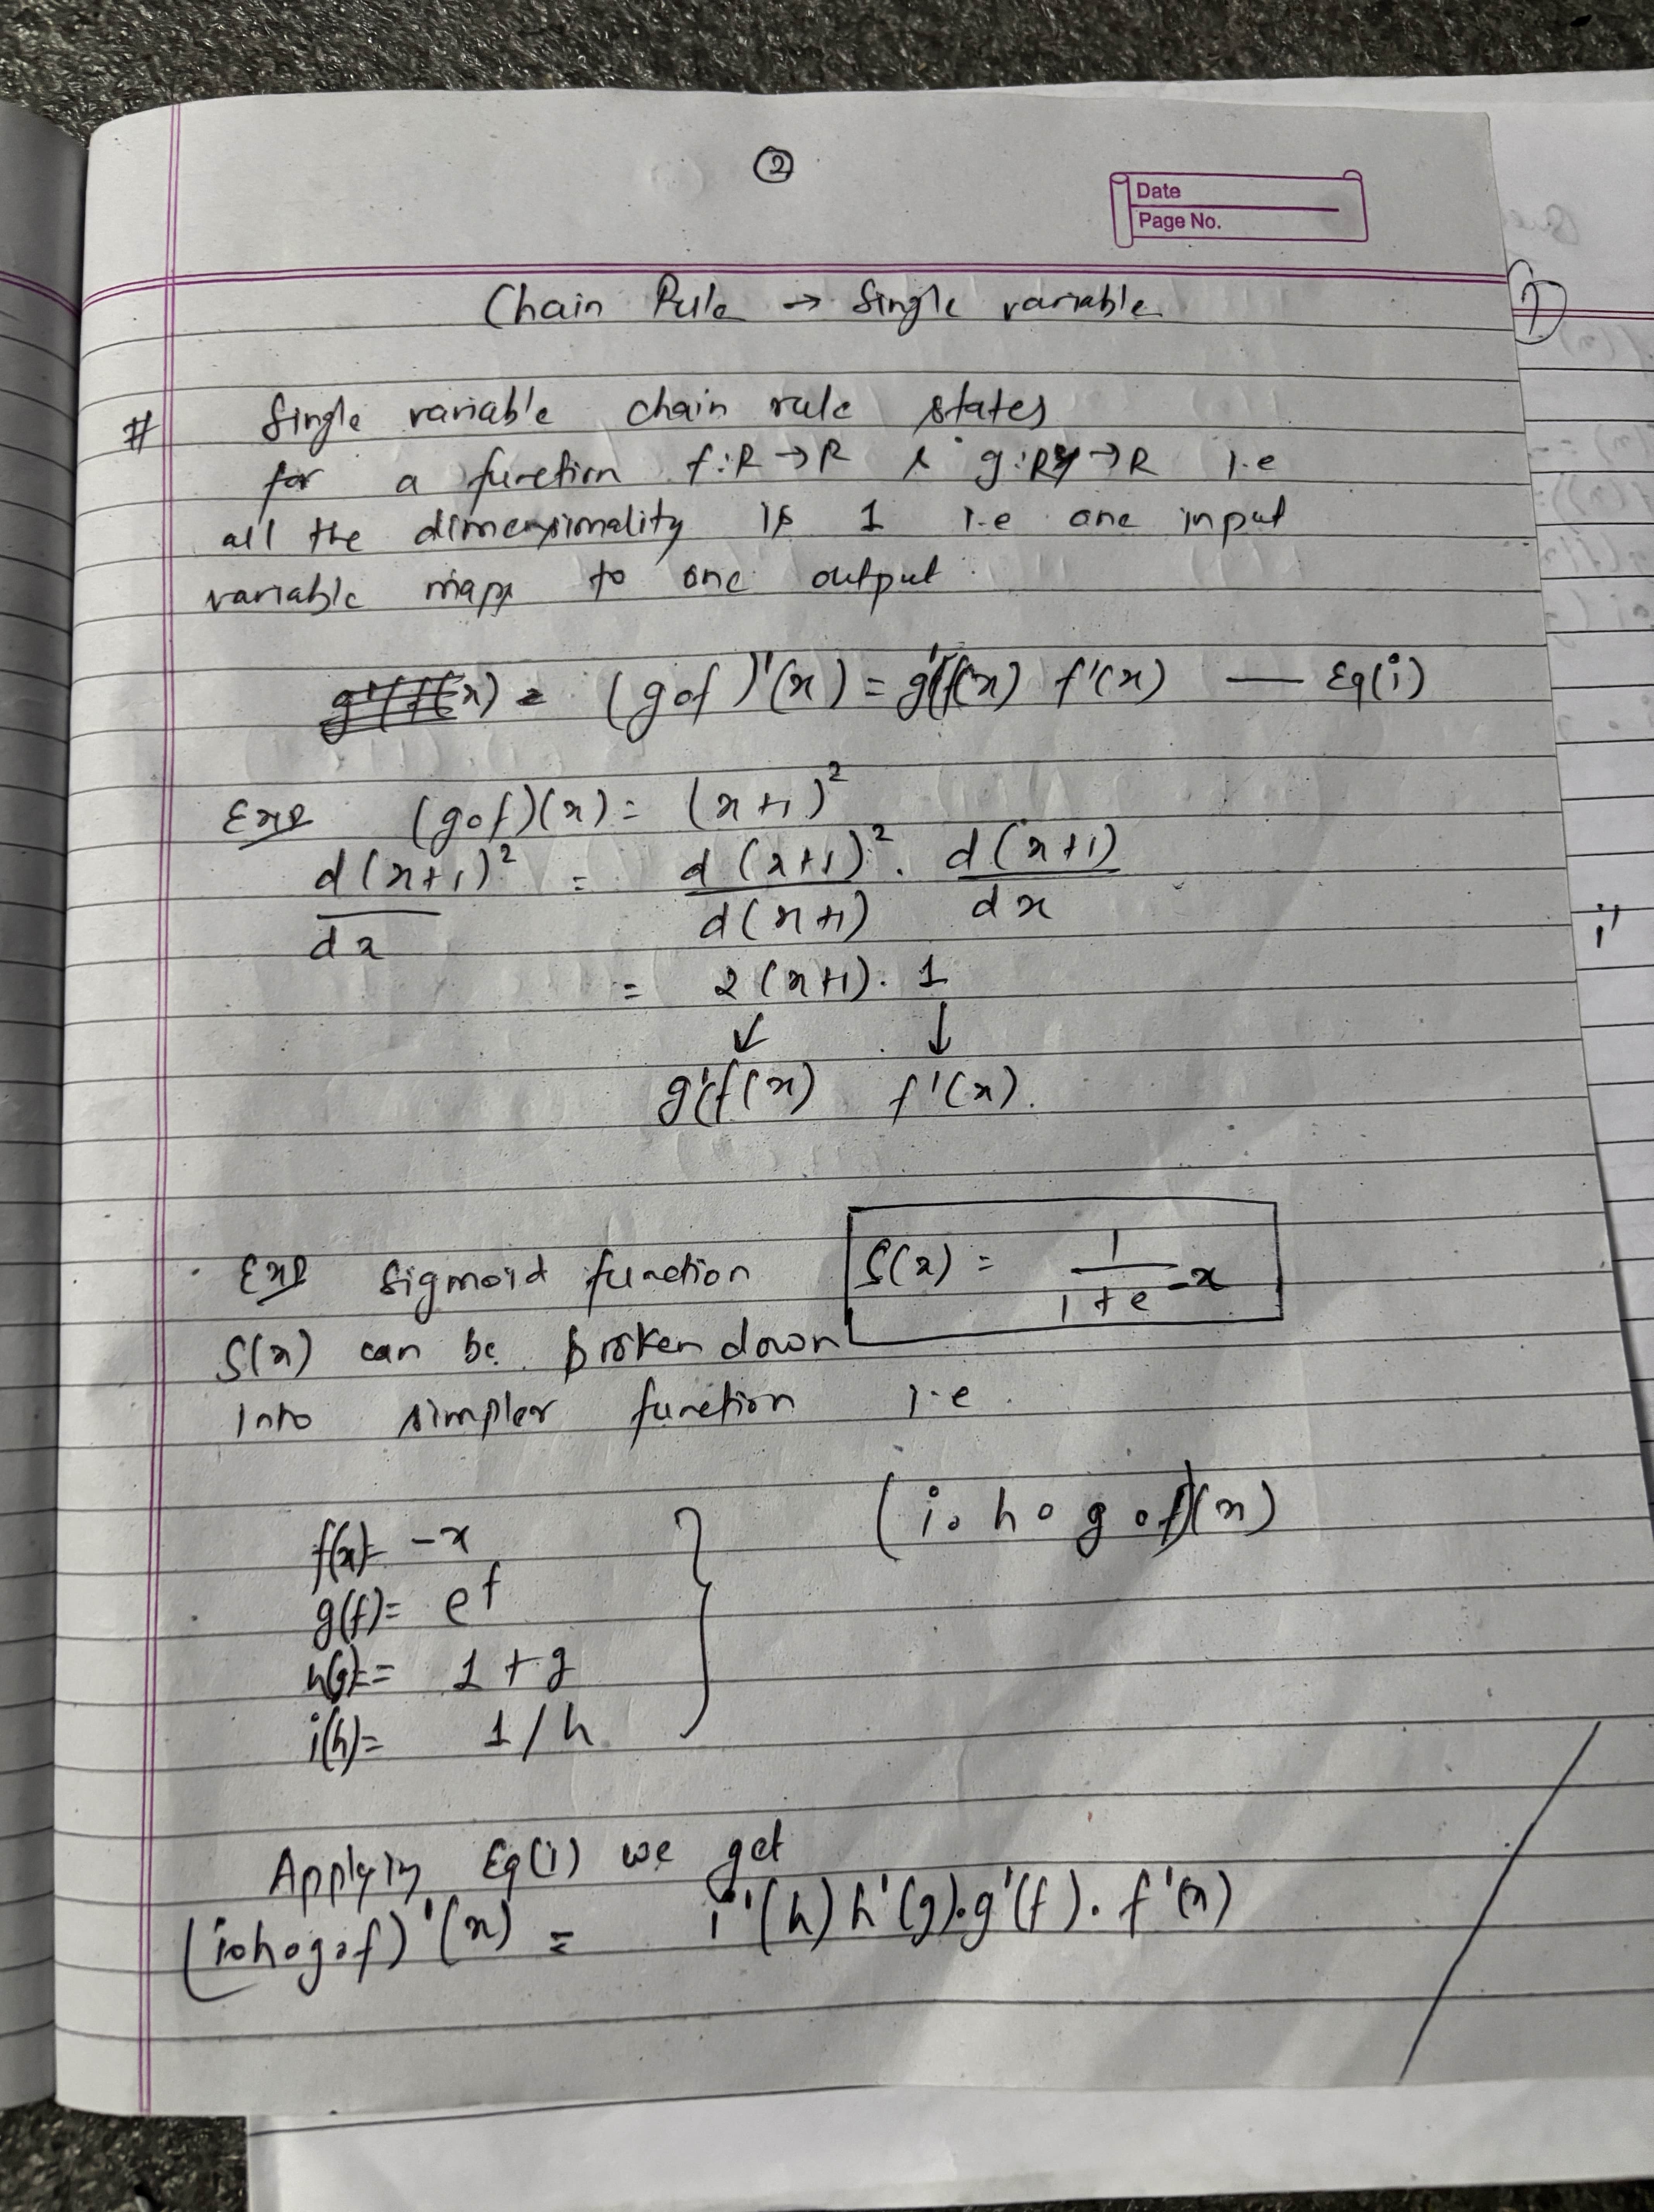 ②
Date
Page No.
Chain Rule → Single variable
# Single variable chain rule states
for a function f:R→R & g:R→R i.e
all the dimensionality is 1 i.e one input
variable maps to one output.
(gof)'(x) = g'(f(x) f'(x) — Eq(i)
Exp (gof)(x) = (x+1)²
d(x+1)²/dx = d(x+1)²/d(x+1) . d(x+1)/dx
= 2(x+1). 1
↓ ↓
g'(f(x) f'(x).
Exp Sigmoid function S(x) = 1/1+e^-x
S(x) can be Broken down
into simpler function i.e.
f(x)= -x
(i o h o g o f)(x)
g(f)= e^f
h(g)= 1 + g
i(h)= 1/h
Applying Eq(i) we get
(iohogof)'(x) = i'(h) h'(g).g'(f). f'(x)